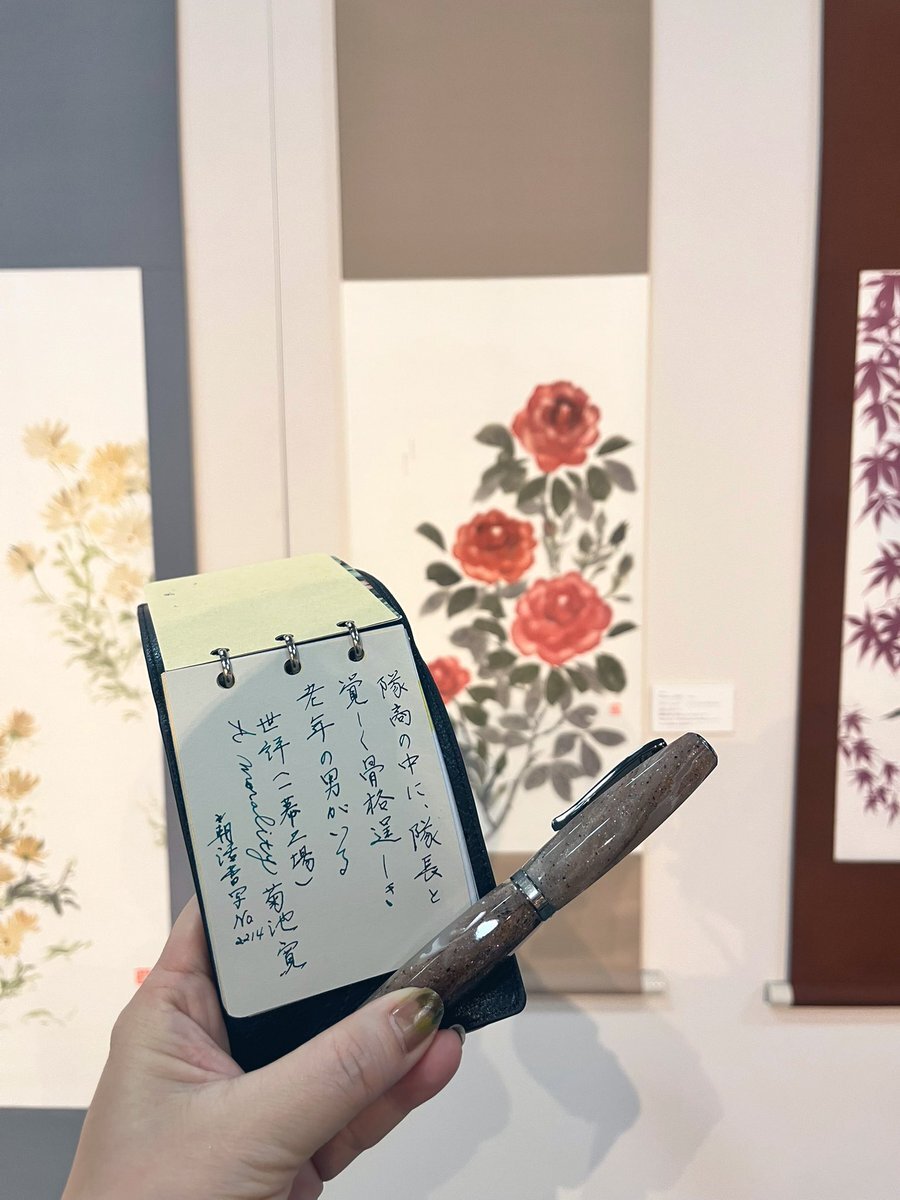 隊商の中に、隊長と
覚しく骨格逞しき
老年の男がいる
世評(一幕二場)
A morality 菊池寛
#朝活書写 No.
2214